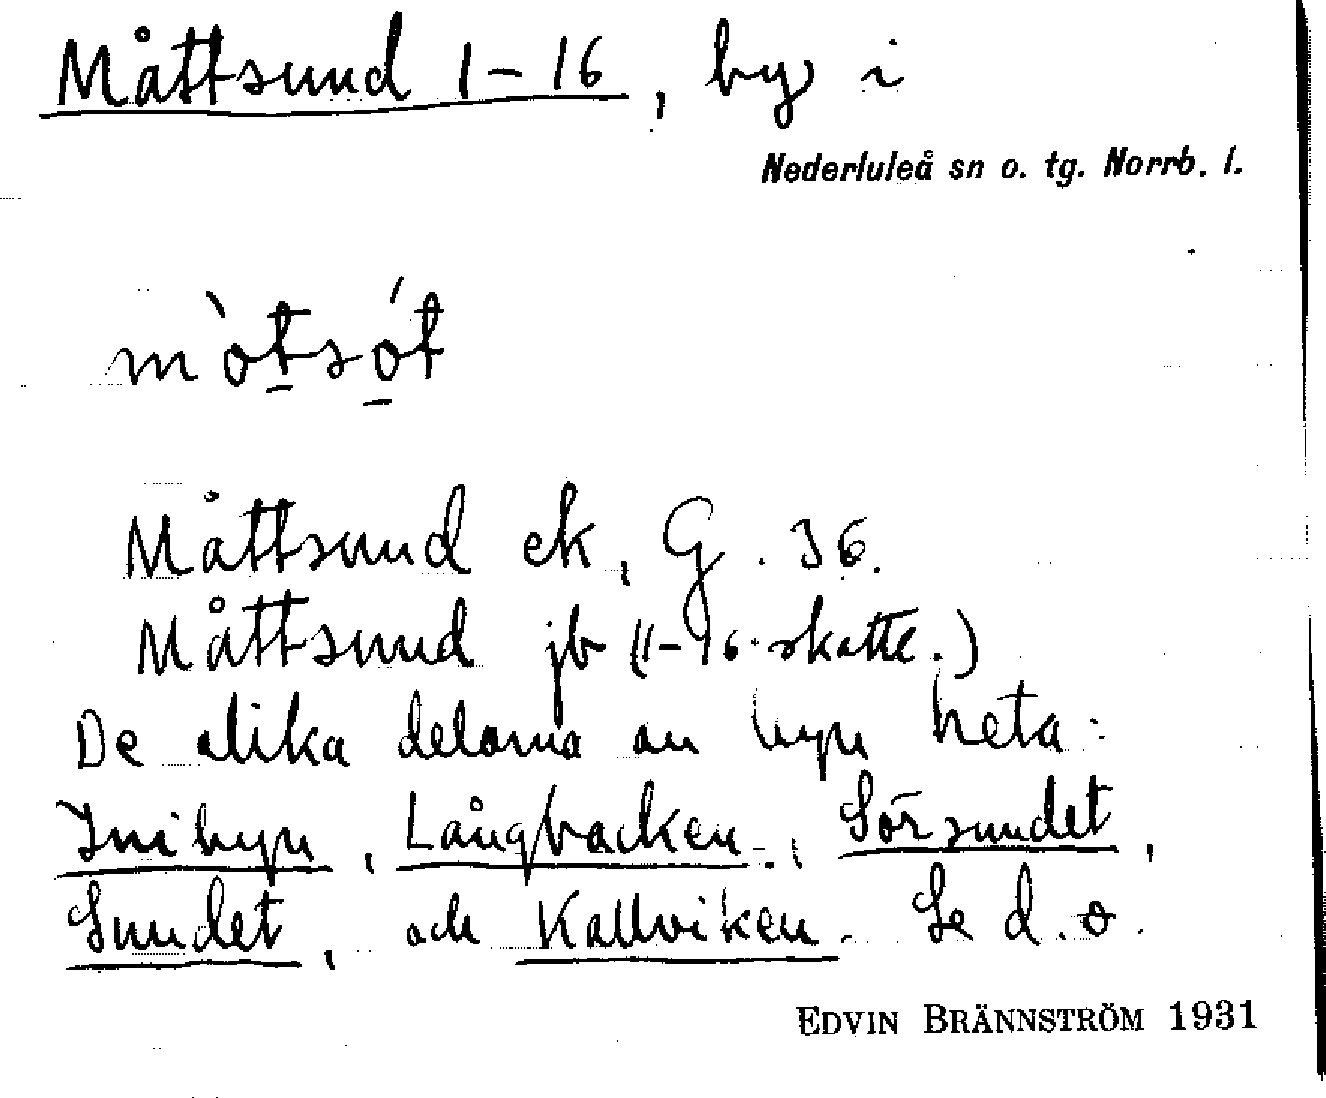 Måttsund 1-16, by i
Nederluleå sn o. tg. Norrb. l.
mòtsót
Måttsund ek, G. 36.
Måttsund jb (1-16 skatte.)
De olika delarna av byn heta:
Inibyn, Långbacken, Sörsundet,
Sundet, och Kallviken. Se d. o.
EDVIN BRÄNNSTRÖM 1931